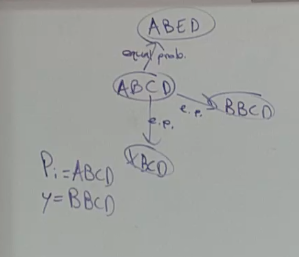 ABED
equal prob.
ABCD
e.p.
BBCD
e.p.
Pi=ABCD
y=BBCD